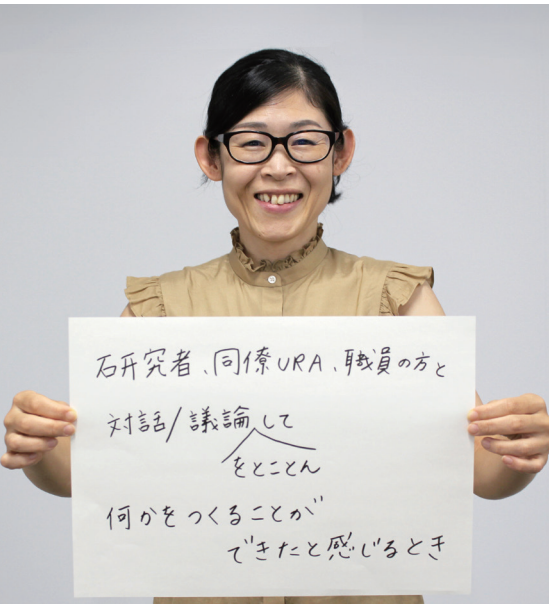 研究者、同僚URA、職員の方と
対話/議論して
をとことん
何かをつくることが
できたと感じるとき